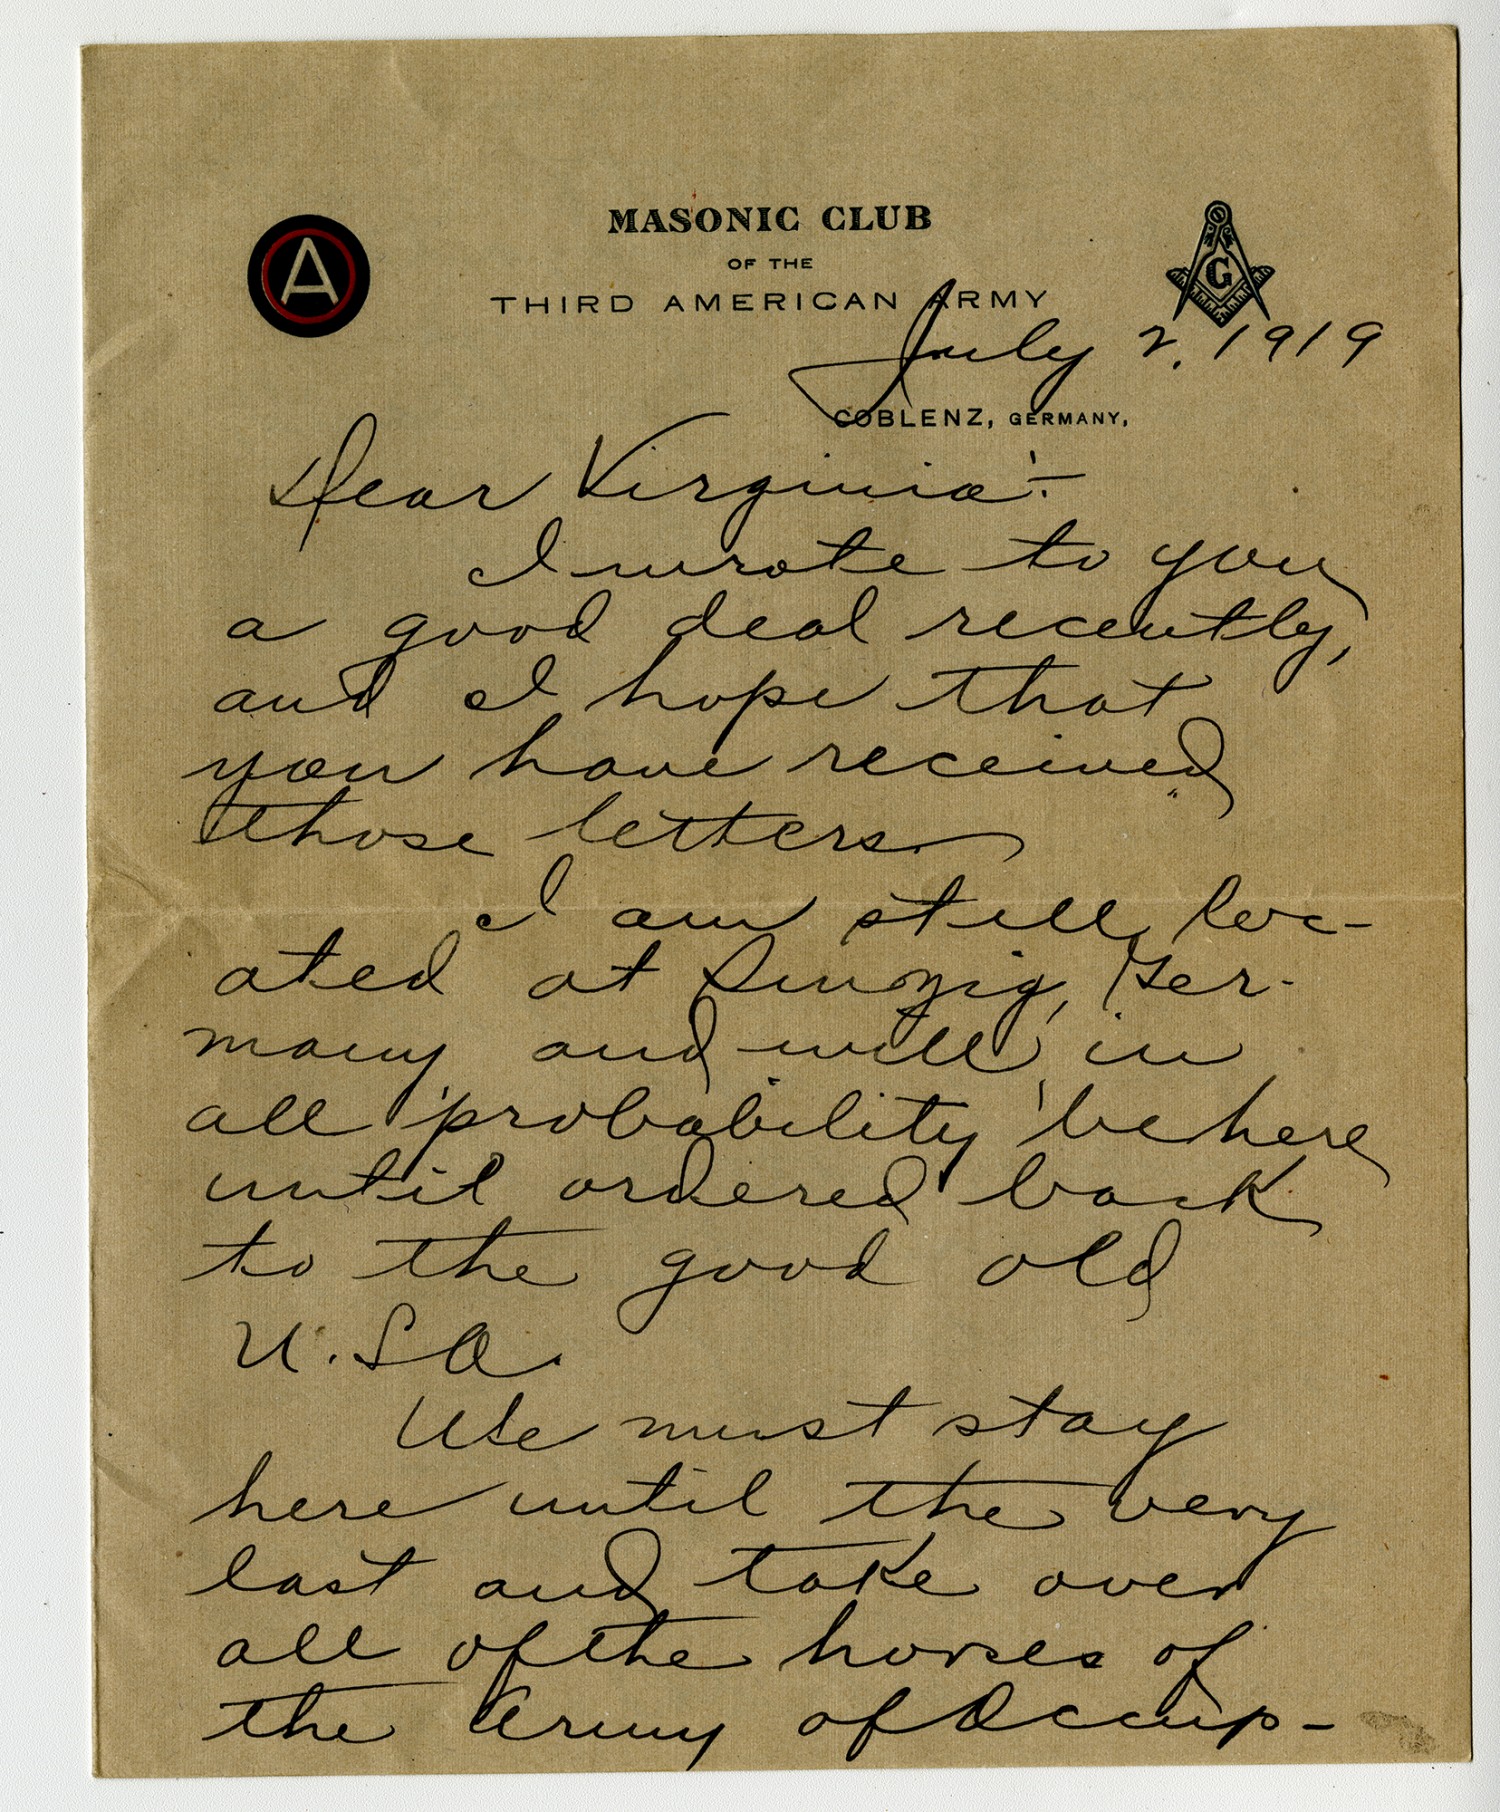 MASONIC CLUB
OF THE
THIRD AMERICAN ARMY
A
G
July 2, 1919
COBLENZ, GERMANY,
Dear Virginia:-
I wrote to you
a good deal recently,
and I hope that
you have received
those letters
I am still loc-
ated at Sinzig, Ger-
many and will in
all probability be here
until ordered back
to the good old
U.S.A.
We must stay
here until the very
last and take over
all of the horses of
the Army of Occup-